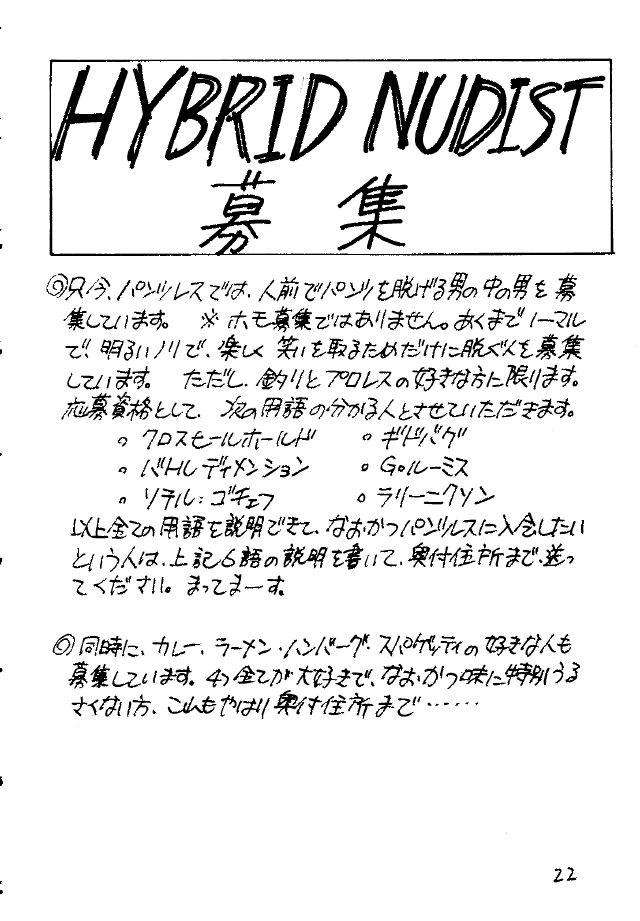 HYBRID NUDIST
募集
◎只今、パンツレスでは、人前でパンツを脱げる男の中の男を募
集しています。 ※ホモ募集ではありません。あくまでノーマル
で、明るいノリで、楽しく笑いを取るためだけに脱ぐ人を募集
しています。 ただし、釣りとプロレスの好きな方に限ります。
応募資格として、次の用語の分かる人とさせていただきます。
○クロスヒールホールド ○ギドバグ
○バトルディメンション ○Goルーミス
○ソテル:ゴチェフ ○ラリーニクソン
以上全ての用語を説明できて、なおかつパンツレスに入会したい
という人は、上記6語の説明を書いて、奥付住所まで送っ
てください。まってまーす。
◎同時に、カレー、ラーメン・ハンバーグ・スパゲッティの好きな人も
募集しています。4つ全てが大好きで、なおかつ味に特別うる
さくない方、これもやはり奥付住所まで……
22